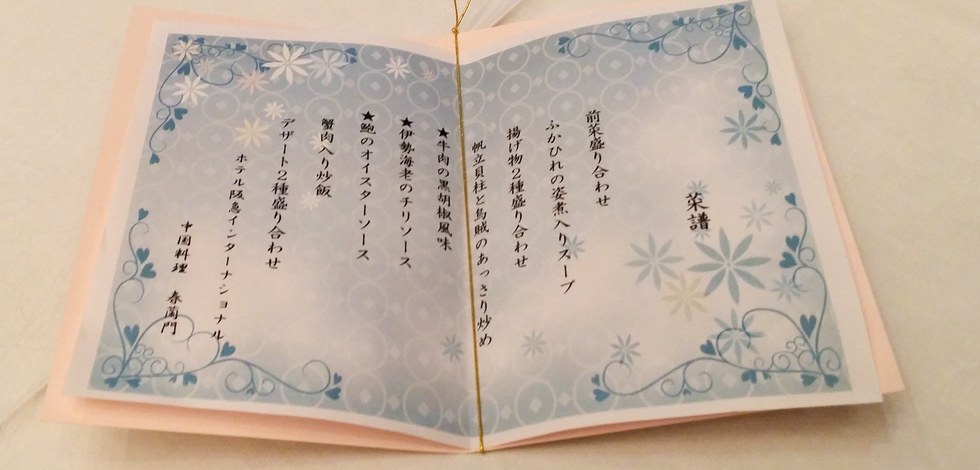 菜譜
前菜盛り合わせ
ふかひれの姿煮入りスープ
揚げ物2種盛り合わせ
帆立貝柱と烏賊のあっさり炒め
★牛肉の黒胡椒風味
★伊勢海老のチリソース
★鮑のオイスターソース
蟹肉入り炒飯
デザート2種盛り合わせ
ホテル阪急インターナショナル
中国料理 春蘭門